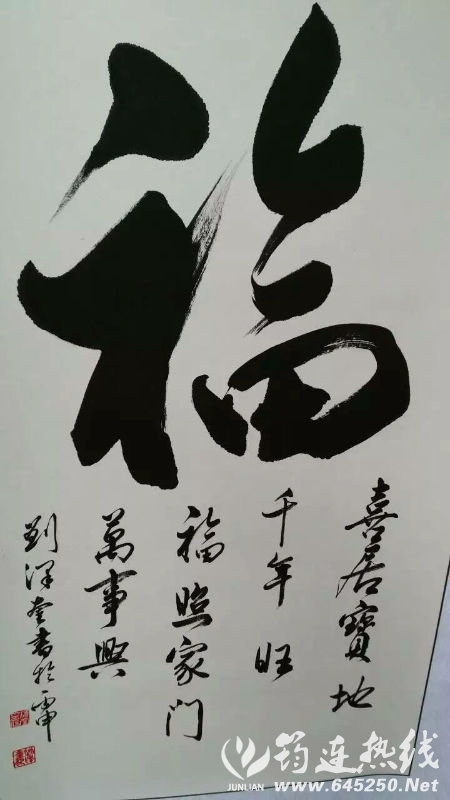 福
喜居寶地
千年旺
福照家门
萬事興
刘泽奎书於
筠连热线
JUNLIAN
www.645250.Net